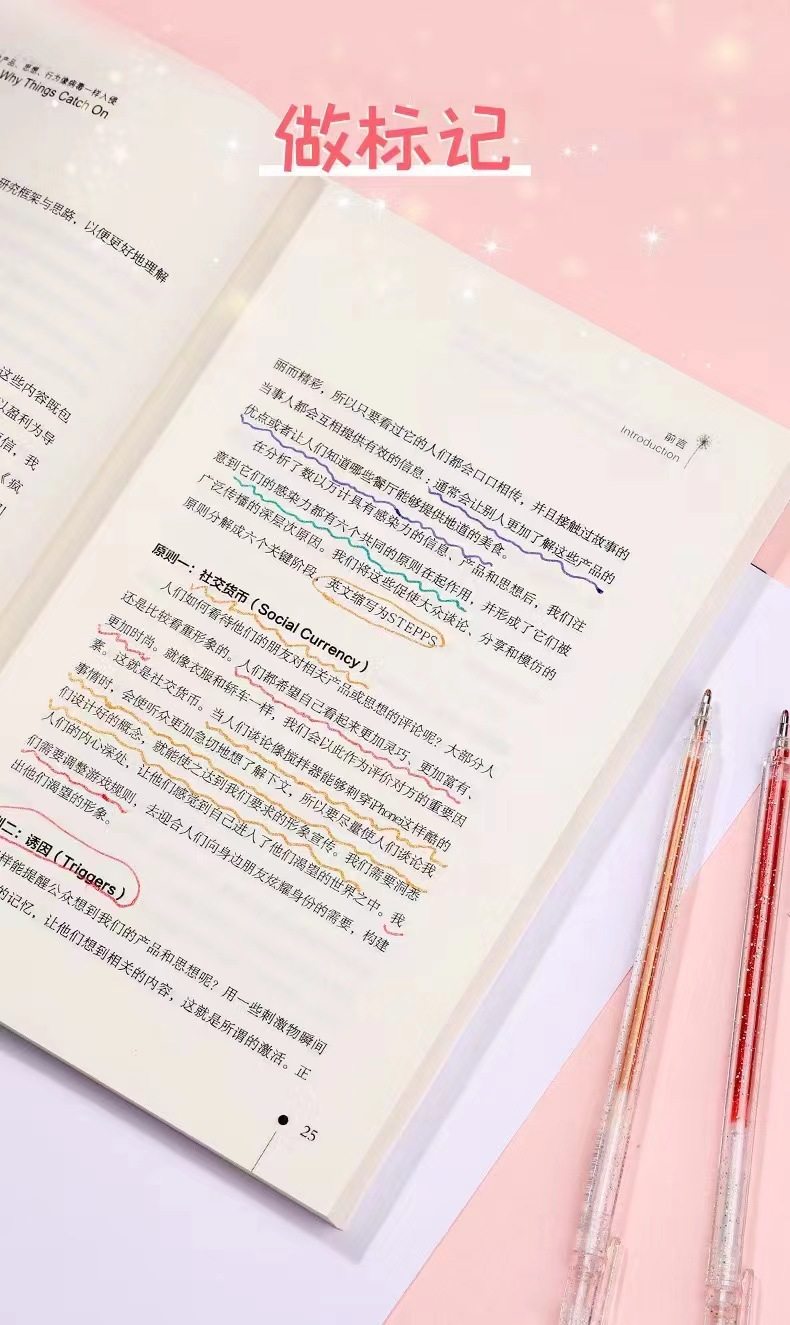 做标记
产品、思想、行为像病毒一样入侵
Why Things Catch On
研究框架与思路，以便更好地理解
这些内容既包
以盈利为导
信，我
《疯
前言
Introduction
丽而精彩，所以只要看过它的人们都会口口相传，并且接触过故事的
当事人都会互相提供有效的信息：通常会让别人更加了解这些产品的
优点或者让人们知道哪些餐厅能够提供地道的美食。
在分析了数以万计具有感染力的信息、产品和思想后，我们注
意到它们的感染力都有六个共同的原则在起作用，并形成了它们被
广泛传播的深层次原因。我们将这些促使大众谈论、分享和模仿的
原则分解成六个关键阶段，英文缩写为STEPPS
原则一：社交货币（Social Currency）
人们如何看待他们的朋友对相关产品或思想的评论呢？大部分人
还是比较看重形象的。人们都希望自己看起来更加灵巧、更加富有、
更加时尚。就像衣服和轿车一样，我们会以此作为评价对方的重要因
素。这就是社交货币。当人们谈论像搅拌器能够刺穿iPhone这样酷的
事情时，会使听众更加急切地想了解下文，所以要尽量使人们谈论我
们设计好的概念，就能使之达到我们要求的形象宣传。我们需要洞悉
人们的内心深处，让他们感觉到自己进入了他们渴望的世界之中。我
们需要调整游戏规则，去迎合人们向身边朋友炫耀身份的需要，构建
出他们渴望的形象。
则二：诱因（Triggers）
样能提醒公众想到我们的产品和思想呢？用一些刺激物瞬间
的记忆，让他们想到相关的内容，这就是所谓的激活。正
25